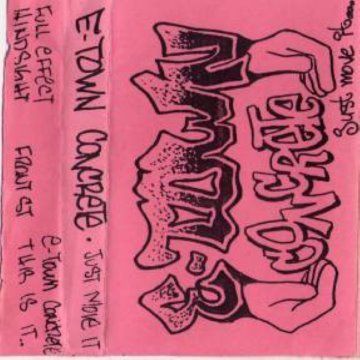 Just move it...
E-TOWN
CONCRETE
E-TOWN CONCRETE • JUST MOVE IT
FULL EFFECT FRONT ST E. TOWN CONCRETE
HINDSIGHT THIS IS IT..